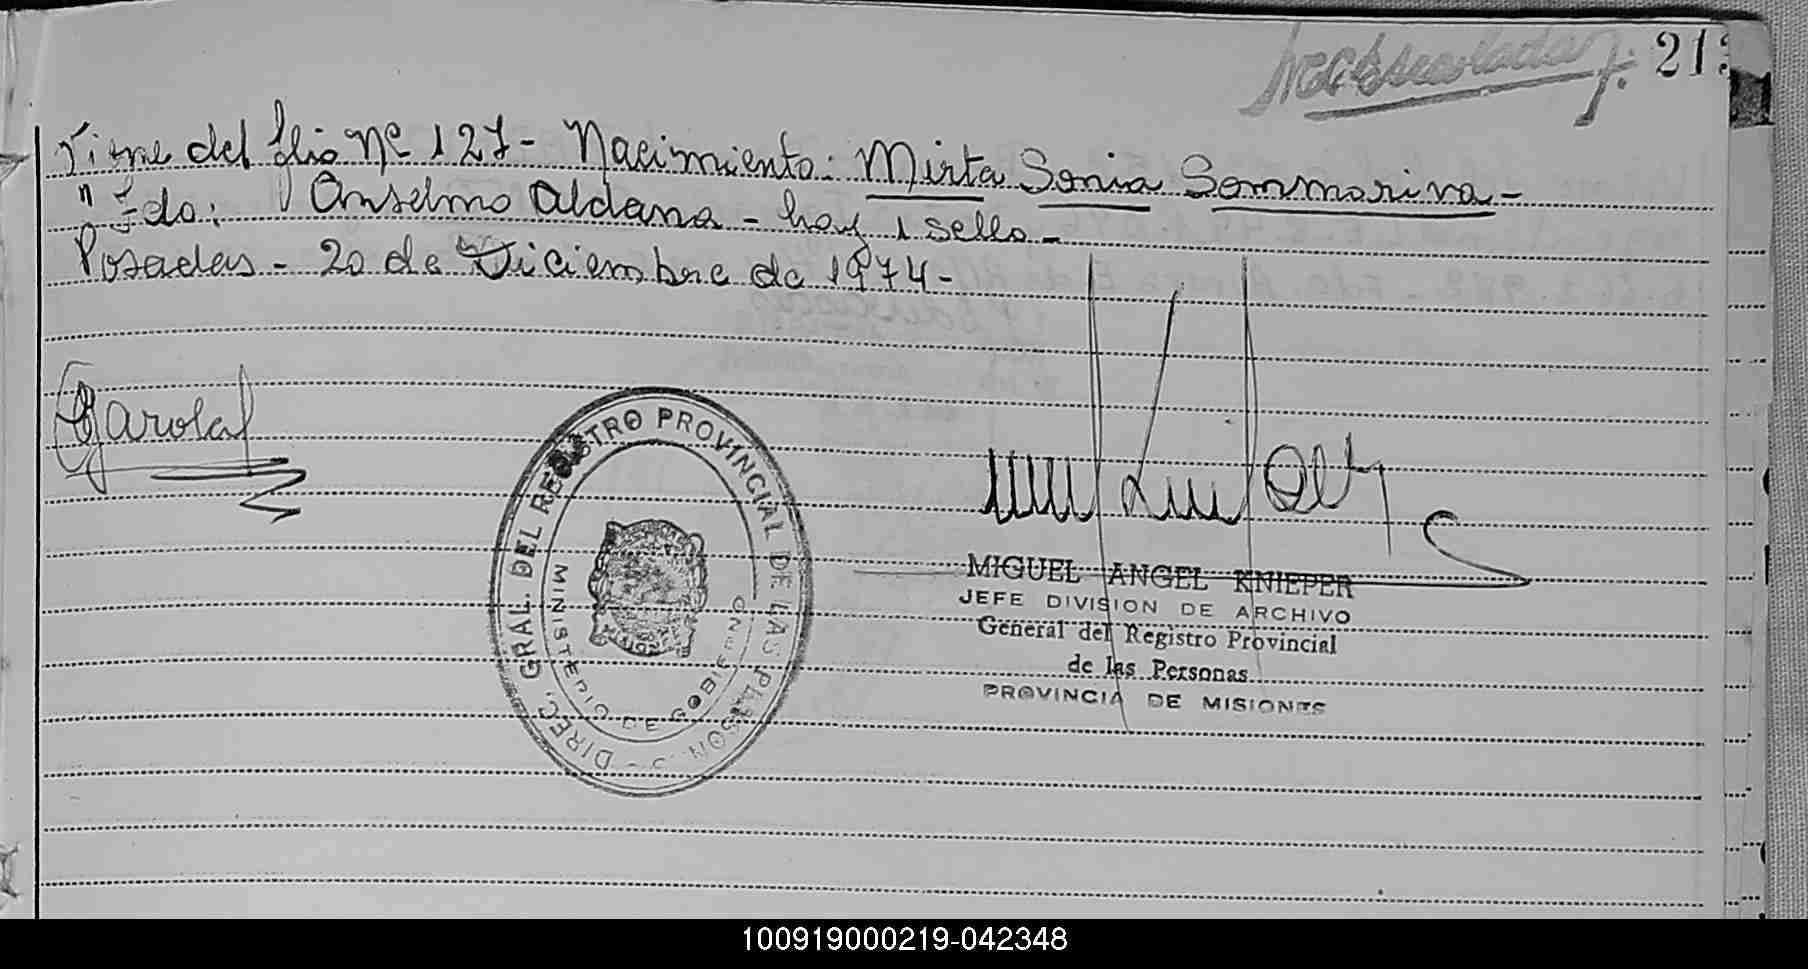 213
Viene del folio Nº 127 - Nacimiento: Mirta Sonia Sommariva -
" Fdo: Anselmo Aldana - hay 1 sello -
Posadas - 20 de Diciembre de 1974 -
DIREC. GRAL. DEL REGISTRO PROVINCIAL DE LAS PERSON.
MINISTERIO DE GOB
MIGUEL ANGEL KNIEPER
JEFE DIVISION DE ARCHIVO
General del Registro Provincial
de las Personas
PROVINCIA DE MISIONES
100919000219-042348